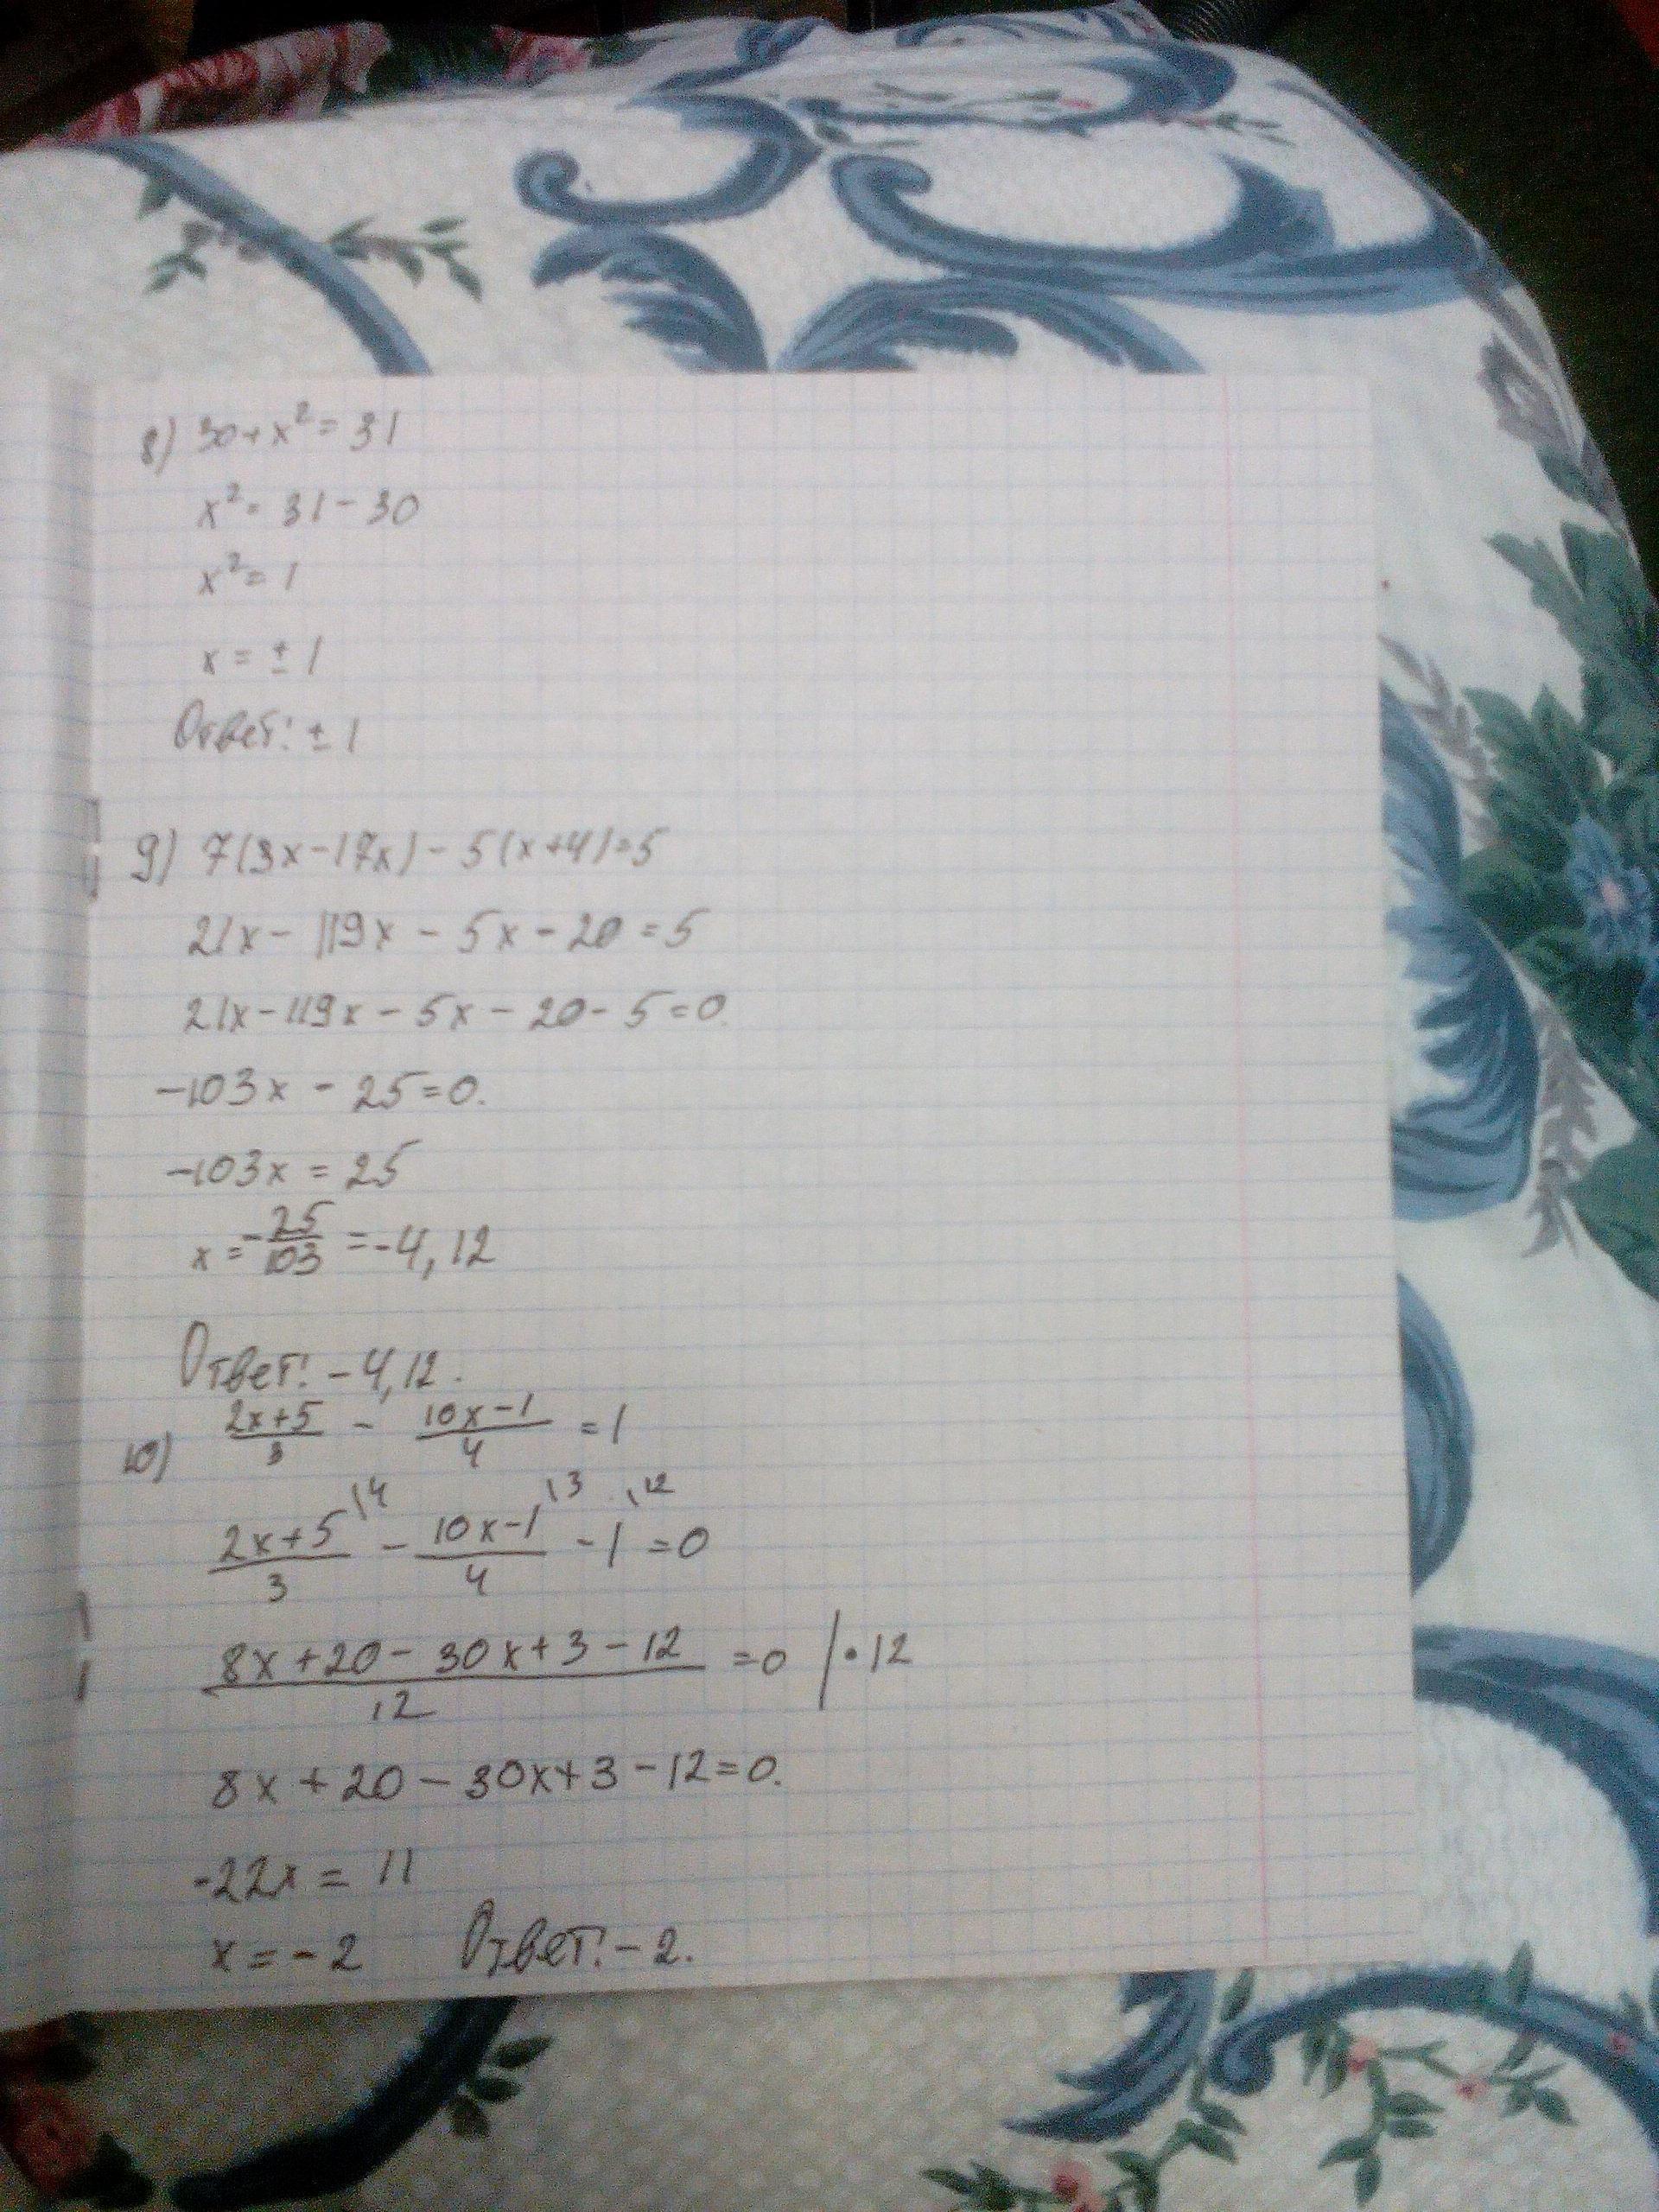 8) 30+x²=31
x²=31-30
x²=1
x=±1
Ответ: ±1
9) 7(3x-17x)-5(x+4)=5
21x-119x-5x-20=5
21x-119x-5x-20-5=0.
-103x-25=0.
-103x=25
x=-25/103=-4,12
Ответ: -4,12.
10) (2x+5)/3 - (10x-1)/4 =1
(2x+5)/3 \4 - (10x-1)/4 \3 -1 \12 =0
(8x+20-30x+3-12)/12 =0 |·12
8x+20-30x+3-12=0.
-22x=11
x=-2 Ответ: -2.